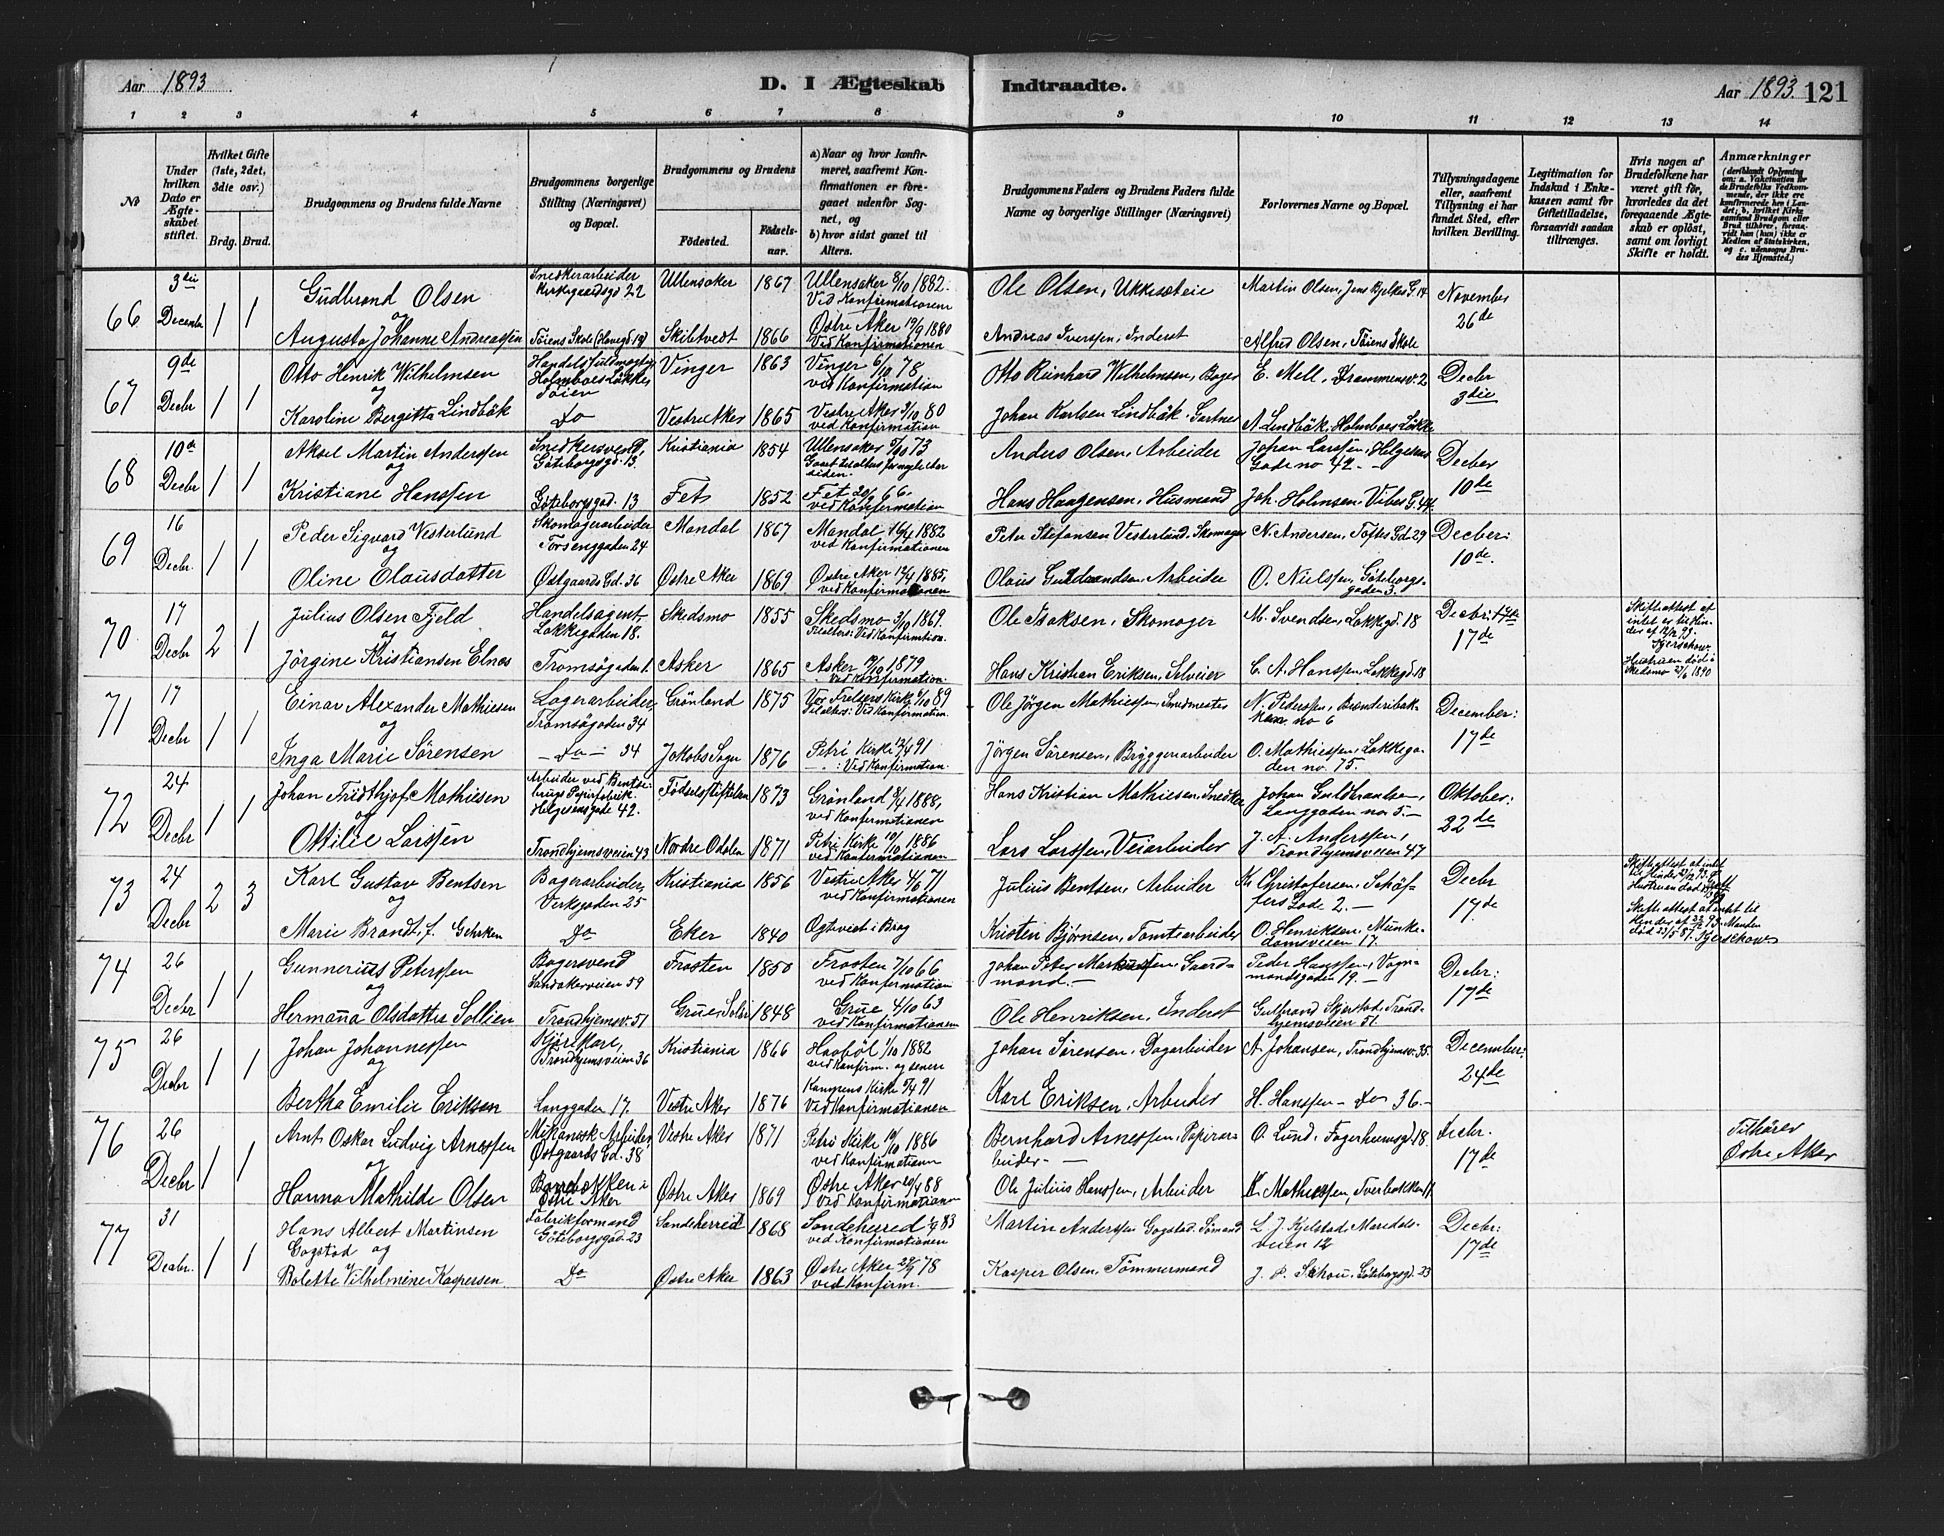 Aar 1893
D. I Ægteskab
Indtraadte.
Aar 1893. 121
1 2 3 4 5 6 7 8 9 10 11 12 13 14
No
Under hvilken Dato er Ægteskabet stiftet.
Hvilket Gifte (1ste, 2det, 3die osv.)
Brdg. Brud.
Brudgommens og Brudens fulde Navne
Brudgommens borgerlige Stilling (Næringsvei) og Bopæl.
Brudgommens og Brudens
Fødested.
Fødselsaar.
a) Naar og hvor konfirmeret, saafremt Konfirmationen er foregaaet udenfor Sognet, og
b) hvor sidst gaaet til Alters.
Brudgommens Faders og Brudens Faders fulde Navne og borgerlige Stillinger (Næringsvei)
Forlovernes Navne og Bopæl.
Tillysningsdagene eller, saafremt Tillysning ei har fundet Sted, efter hvilken Bevilling.
Legitimation for Indskud i Enkekassen samt for Giftetilladelse, forsaavidt saadan tiltrænges.
Hvis nogen af Brudefolkene har været gift før, hvorledes da det foregaaende Ægteskab er opløst, samt om lovligt Skifte er holdt.
Anmærkninger
66 3die Decembr 1 1
Gudbrand Olsen
Snedkerarbeider Kirkegaardsgd 22
Ullensaker 1867
Ullensaker 8/10 1882. Ved Konfirmationen
Ole Olsen, Ukkisæteie
Martin Olsen, Jens Bjelkes G. 14
November 26de
og
Augusta Johanne Andreassen
Töiens Skole (Havegd 13)
Skibtvedt 1866
Østre Aker 19/9 1880 Ved Konfirmationen
Andreas Iverssen, Inderst
Alfred Olsen, Töiens Skole
67 9de Decbr 1 1
Otto Henrik Wilhelmsen
Handelsfuldmægtig Holmboes Løkke Töien
Vinger 1863
Vinger 6/10 78, ved Konfirmation
Otto Reinhard Wilhelmsen, Bager
E. Mell, Drammensv. 2
Decbr 3die
og
Karoline Bergitta Lindbäk
Do
Vestre Aker 1865
Vestre Aker 3/10 80 ved Konfirmation
Johan Karlsen Lindbäk, Gartner
A. Lindbäk, Holmboes Løkke
68 10de Decbr 1 1
Aksel Martin Anderssen
Snedkersvend, Göteborgsgd. 13.
Kristiania 1854
Ullensaker 5/10 73
Anders Olsen, Arbeider
Johan Larssen, Helgesens Gade no 42.
Decber 10de
og
Kristiane Hanssen
Göteborgsgad. 13
Fet 1852
Fet 20/9 66. ved Konfirmation
Hans Haagensen, Husmand
Joh. Holmsen, Vibes G. 44
69 16 Decbr. 1 1
Peder Sigvard Vesterlund
Skomagerarbeider Torsenggaden 24
Mandal 1867
Mandal 16/4 1882 ved Konfirmationen
Peter Stefansen Vesterlund. Skomager
N. Andersen, Toftes Gd. 29
Decber: 10de
og
Oline Olausdatter
Østgaards Gd. 36
Østre Aker 1869
Østre Aker 12/4 1885, ved Konfirmationen
Olaus Guldbrandsen, Arbeider
O. Nielssen, Göteborgsgaden 3.
70 17 Decbr 2 1
Julius Olsen Fjeld
Handelsagent Lakkegaden 18.
Skedsmo 1855
Skedsmo 3/10 1869. Til alters: Ved Konfirmtion.
Ole Isaksen, Skomager
M. Svendsen, Lakkegd. 18
Decbr: 17de
Skifteattest at intet er til Hinder af 12/12 93. Fjerschow
Hustruen död i Skedsmo 27/6 1890
og
Jörgine Kristiansen Elnes
Tromsögaden 1.
Asker 1865
Asker 19/10 1879 Ved Konfirmation.
Hans Kristian Eriksen, Selveier
C. A. Hanssen, Lakkegd. 18
71 17 Decbr 1 1
Einar Alexander Mathiesen
Lagerarbeider, Tromsögaden 34
Grønland 1875
Vor Frelsers Kirke 6/10 89 Til alters: Ved Konfirmation.
Ole Jörgen Mathiessen, Smedmester
N. Pederssen, Brænderibakken no 6
December: 17de
og
Inga Marie Sørensen
– Do – 34
Jakobs Sogn 1876
Petri Kirke 12/4 91 : Ved Konfirmation.
Jörgen Sørensen, Bryggeriarbeider
O. Mathiessen, Lakkegaden no. 75.
72 24 Decbr 1 1
Johan Fridthjof Mathiesen
Arbeider ved Bentsebrugs Papirfabrik. Helgesensgade 42.
Fødselsstiftelsen 1873
Grönland 8/4 1888, ved Konfirmationen
Hans Kristian Mathiesen, Snedker
Johan Guldbrantsen, Langgaden no. 5.
Oktober: 22de
og
Ottilie Larssen
Trondhjemsveien 43
Nordre Odalen 1871
Petri Kirke 10/10 1886 ved Konfirmationen
Lars Larssen, Veiarbeider
J. A. Anderssen, Trondhjemsveien 47
73 24 Decbr 2 3
Karl Gustav Bentsen
Bagerarbeider, Verksgaden 25
Kristiania 1856
Vestre Aker 4/6 71 ved Konfirmationen
Julius Bentsen, Arbeider
Kr. Christofersen, Schöffers Gade 2.
Decbr 17de
og
Marie Brandt, f. Gehrken
Do
Eker 1840
Ogtviet i Brag
Kristen Bjørnsen, Tomtearbeider
O. Henriksen, Munkedamsveien 17.
74 26 Decbr 1 1
Gunnerius Peterssen
Bagersvend Sandakerveien 59
Frosten 1850
Frosten 7/10 66 ved Konfirmationen
Johan Peter Martinssen, Gaardmand.
Peder Haagssen, Vognmandsgaden 19.
Decbr: 17de
og
Hermana Olsdatter Sollien
Trondhjemsv. 51
Grue, Solør 1848
Grue 4/10 63 ved Konfirmationen
Ole Henriksen, Inderst
Gulbrand Skjerstad, Trondhjemsveien 51.
75 26 Decbr 1 1
Johan Johannessen
Kjörekarl, Trondhjemsveien 36
Kristiania 1866
Haaböl 1/10 1882 ved Konfirm. og senere
Johan Sørensen, Dagarbeider
A. Johansen, Trondhjemsv. 35.
December: 24de
og
Bertha Emilie Eriksen
Langgaden 17.
Vestre Aker 1876
Kampens Kirke 5/4 91 Ved Konfirmationen
Karl Eriksen, Arbeider
H. Hanssen – Do 36.
76 26 Decbr 1 1
Arnt Oskar Ludvig Arnessen
Mekanisk Arbeider, Østgaards Gd. 38
Vestre Aker 1871
Petri Kirke 10/10 1886 ved Konfirmationen
Bernhard Arnessen, Papirarbeider.
O. Lund, Fagerheimsgd. 18.
Decbr. 17de
Tilhører Østre Aker
og
Hanna Mathilde Olsen
Østre Aker
Østre Aker 1869
Østre Aker 88 Ved Konfirmationen
Ole Julius Hanssen, Arbeider
K. Mathiessen, Tverbakken 11
77 31 Decbr. 1 1
Hans Albert Martinsen Gogstad og
Fabrikformand Göteborgsgad. 23
Sandeherred 1868
Sandeherred 83 ved Konfirmationen
Martin Anderssen Gogstad, Sömand
L. J. Kjelstad, Maridalsveien 12
Decbr: 17de
Bolette Vilhelmine Kaspersen
Do
Østre Aker 1863
Østre Aker 29/9 78 ved Konfirm.
Kasper Olsen, Tömmermand
J. P. Schou, Göteborgsgd. 23